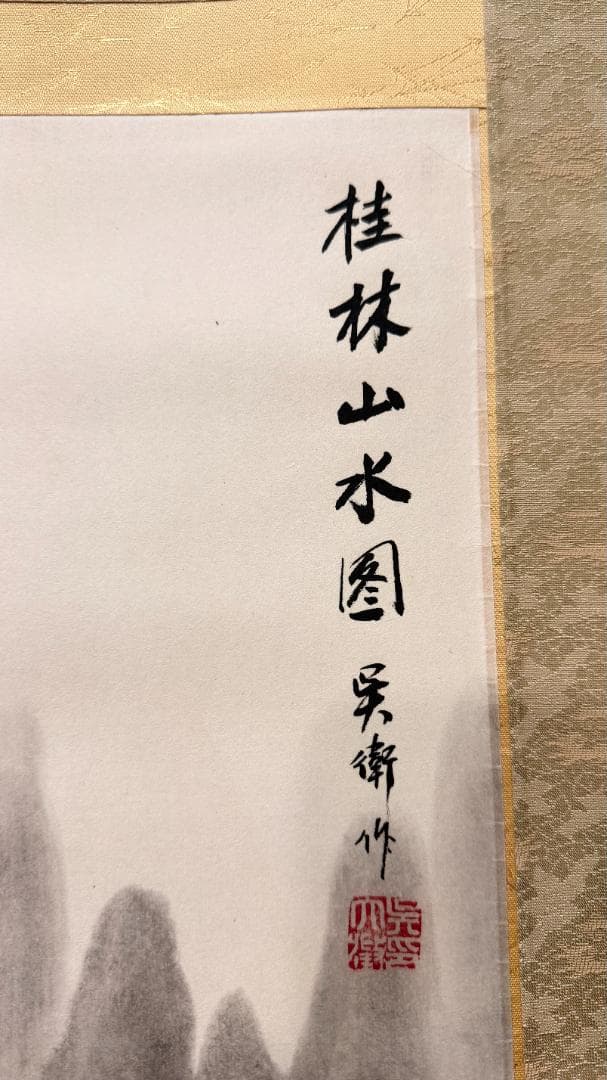 桂林山水图
吴衛作